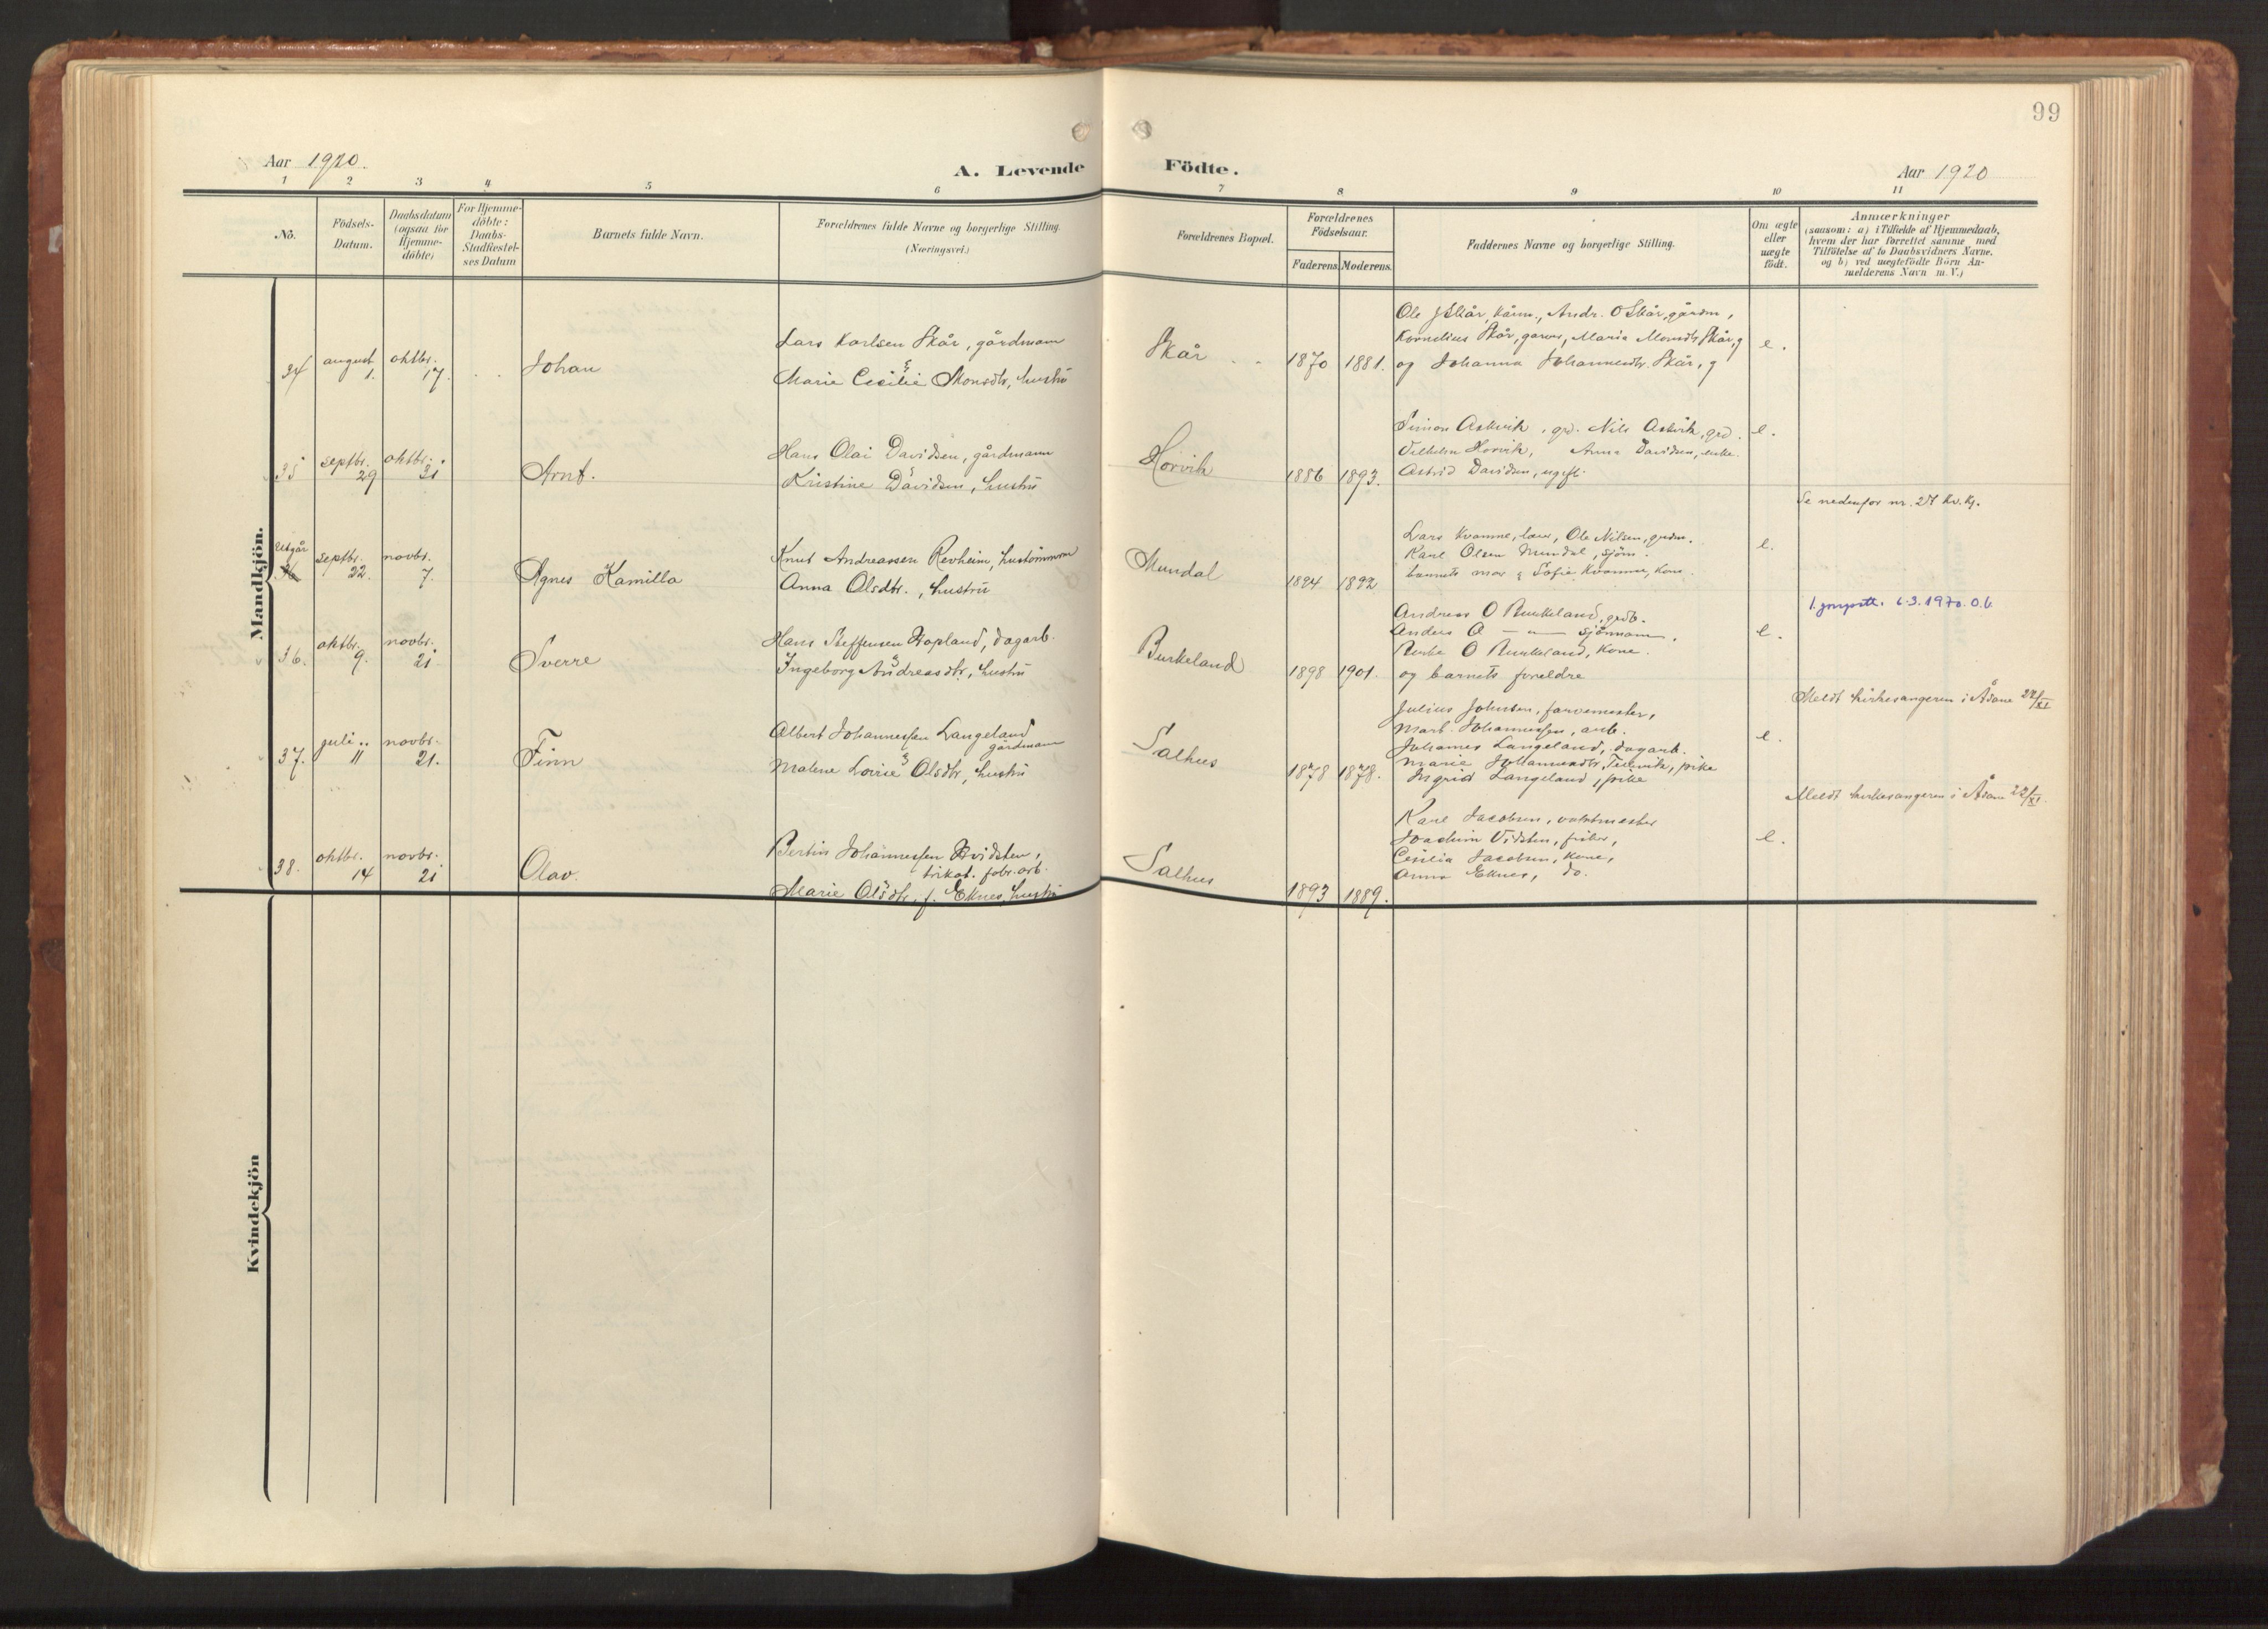 99
Aar 1920.
A. Levende
Födte.
Aar 1920
1 2 3 4 5 6 7 8 9 10 11
No.
Födsels-
Datum.
Daabsdatum
(ogsaa for
Hjemme-
döbte)
For Hjemme-
döbte:
Daabs-
Stadfæstel-
ses Datum
Barnets fulde Navn.
Forældrenes fulde Navne og borgerlige Stilling.
(Næringsvei.)
Forældrenes Bopæl.
Forældrenes
Födselsaar.
Faderens. Moderens.
Faddernes Navne og borgerlige Stilling.
Om ægte
eller
uægte
födt.
Anmærkninger
(saasom: a) i Tilfælde af Hjemmedaab,
hvem der har forrettet samme med
Tilföielse af to Daabsvidners Navne.
og b) ved uægtefödte Börn An-
melderens Navn m. V.)
Mandkjön.
34
august
1.
oktbr.
17.
Johan
Lars Karlsen Skår, gårdmann
&
Marie Cecilie Monsdtr, hustru
Skår
1870
1881.
Ole J Skår, kårm., Andr. O Skår, gårdm,
Kornelius Skår, Maria Monsdtr Skår, g
og Johanna Johannesdtr. Skår, g
e.
35
septbr.
29
oktbr.
31
Arnt.
Hans Olai Davidsen, gårdmann
Kristine Davidsen, hustru
Horvik
1886
1893.
Simon Askvik, grd. Nils Askvik, grd.
Vilhelm Horvik, Anna Davidsen, enke.
Astrid Davidsen, ugift.
e.
Se nedenfor nr. 27 Kv. Kj.
Utgår
36
septbr.
22.
novbr.
7.
Agnes Kamilla
Knut Andreassen Revheim, hustömmerm
Anna Olsdtr., hustru
Mundal
1894
1892
Lars Kvamme, Ole Nilsen, grdm.
Karl Olsen Mundal, sjöm.
barnets mor & Sofie Kvamme, kone.
e.
36.
oktbr.
9.
novbr.
21
Sverre
Hans Steffensen Hopland, dagarb.
&
Ingeborg Andreasdtr, hustru
Burkeland
1898
1901.
Andreas O Burkeland, grdb.
Anders O — " — sjömann.
O Burkeland, kone.
og barnets foreldre
e.
6.3.1970. O.b.
37.
juli
11
novbr.
21.
Finn
Albert Johannessen Langeland
gårdmann
&
Malene Lovise Olsdtr, hustru
Salhus
1878
1878.
Julius Johnsen, farvemester,
Mart. Johannessen, arb.
Johannes Langeland, dagarb.
Marie Johannesdtr. pike
Ingrid Langeland, pike
e.
Meldt kirkesangeren i Åsane 22/XI
38.
oktbr.
14
novbr.
21
Olav
Bertin Johannessen Hvidsten,
trikot. fabr. arb.
Marie Olsdtr. f. Eknes, hustru
Salhus
1893
1889.
Karl Jacobsen, vaktmester
Joachim Vidsten, fisker,
Cecilia Jacobsen, kone,
Anna Eknes, do.
e.
Meldt kirkesangeren i Åsane 22/XI.
Kvindekjön